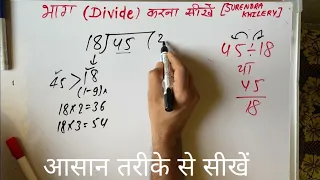 भाग (Divide) करना सीखें [SURENDRA KHILERY]
18) 45 (2
45 ÷ 18
या
45
18
45 > 18
(1-9)x
18 × 2 = 36
18 × 3 = 54
आसान तरीके से सीखें